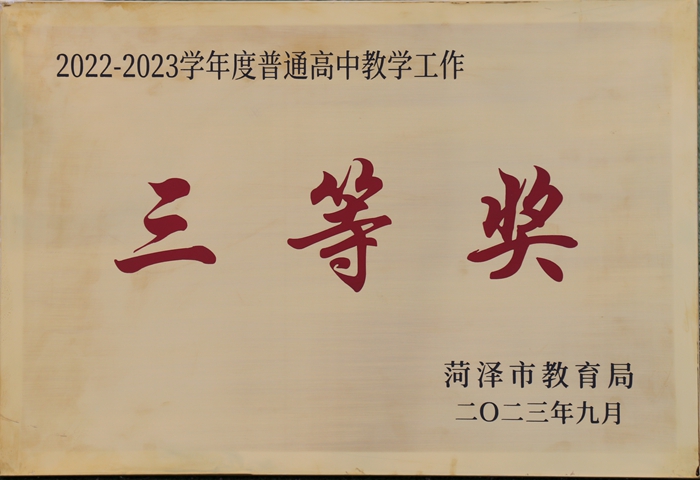 2022-2023学年度普通高中教学工作
三等奖
菏泽市教育局
二〇二三年九月